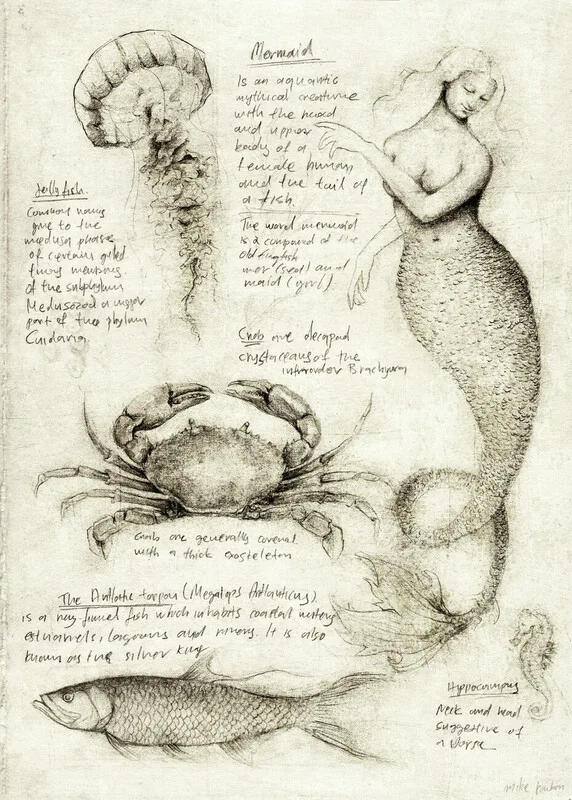 Mermaid
Is an aquantic
mythical creature
with the head
and upper
body of a
female human
and the tail of
a fish.
The word mermaid
is a compound of the
old English
mer (sea) and
maid (girl).
Jelly fish.
Common name
give to the
medusa phases
of certain
members
of the subphylum
Medusozoa a major
part of the phylum
Cnidaria.
Crab are decapod
crystaceans of the
infraorder Brachyura
Crab are generally covered
with a thick exosteleton
The Antlatic tarpon (Megalops Atlanticus)
is a ray-finned fish which inhabits coastal waters
estuaries, lagoons and rivers. It is also
known as the silver king
Hippocampus
Neck and head
suggestive of
a horse
mike